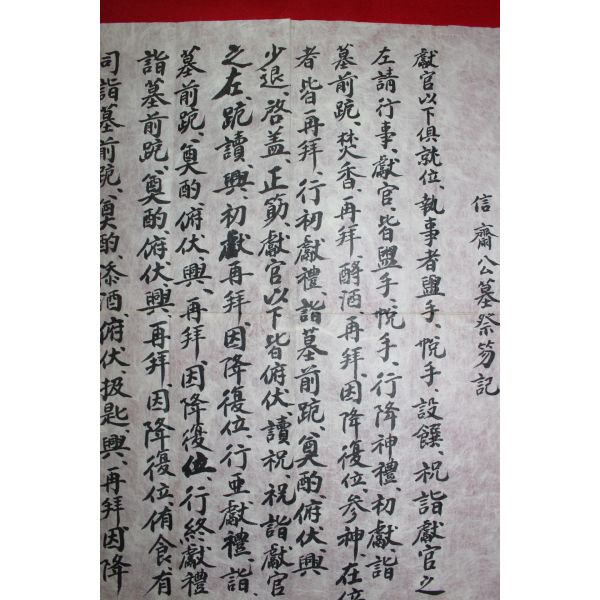 信齋公墓祭笏記
獻官以下俱就位、執事者盥手、帨手、設饌、祝詣獻官之
左請行事、獻官、皆盥手、帨手、行降神禮、初獻詣
墓前跪、焚香、再拜、酹酒、再拜因降復位、參神在位
者皆再拜、行初獻禮、詣墓前跪、奠酌、俯伏、興
少退、啓盖、正筯、獻官以下皆俯伏、讀祝、祝詣獻官
之左跪讀、興、初獻再拜因降復位、行亜獻禮、詣
墓前跪、奠酌、俯伏、興、再拜、因降復位、行終獻禮
詣墓前跪、奠酌、俯伏、興、再拜、因降復位、侑食、有
司詣墓前跪、奠酌、添酒、俯伏、扱匙、興、再拜因降